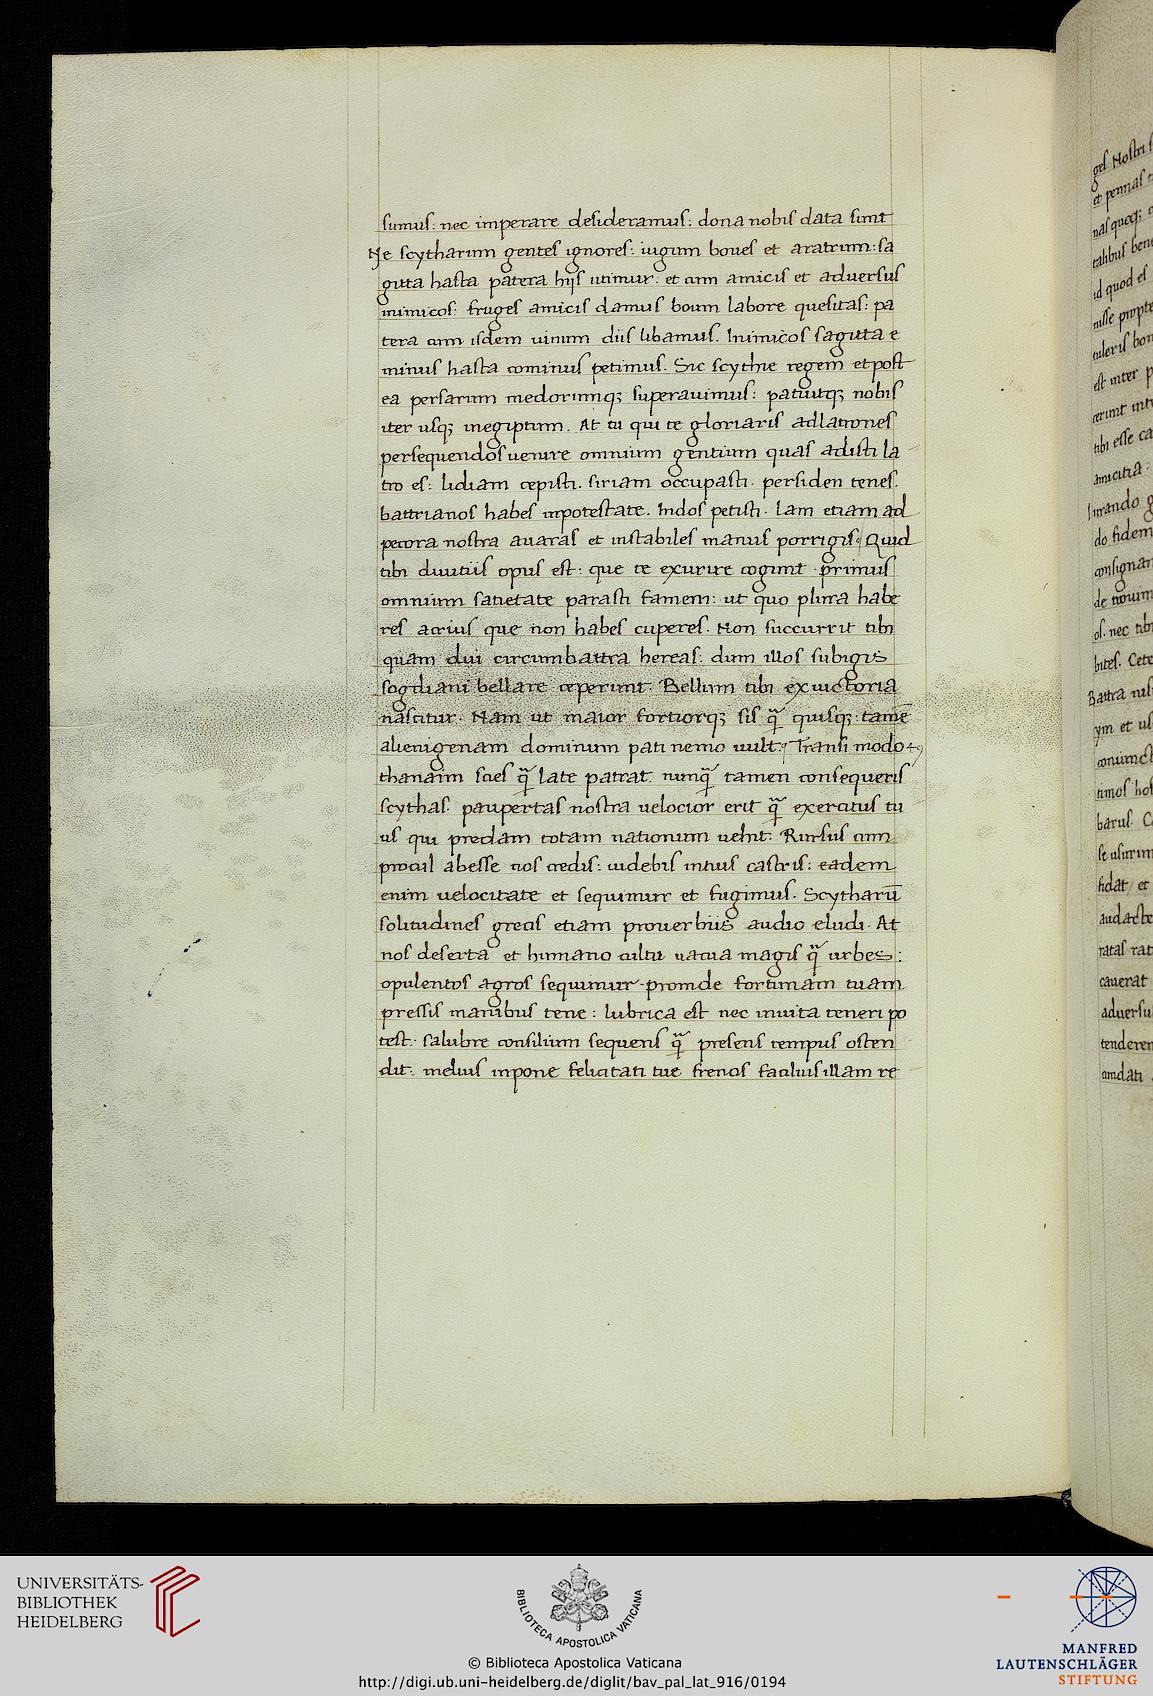 sumus: nec imperare desideramus: dona nobis data sunt
Ne scytharum gentes ignores: iugum boues et aratrum: sa
gitta hasta patera hijs utimur: et cum amicis et aduersus
inimicos: fruges amicis damus boum labore quesitas: pa
tera cum isdem uinum diis libamus. Inimicos sagitta e
minus hasta cominus petimus. Sic scythie regem et post
ea persarum medorumq; superauimus: patuitq; nobis
iter usq; inegiptum. At tu qui te gloriaris adlatrones
persequendos uenire omnium gentium quas adisti la
tro es: lidiam cepisti. siriam occupasti. persiden tenes.
battrianos habes inpotestate. Indos petisti. Iam etiam ad
pecora nostra auaras et instabiles manus porrigis. Quid
tibi diuitiis opus est: que te exurire cogunt. primus
omnium satietate parasti famem: ut quo plura habe
res acrius que non habes cuperes. Non succurrit tibi
quam diu circumbattra hereas: dum illos subigis
sogdiani bellare ceperunt. Bellum tibi ex uictoria
nascitur. Nam ut maior fortiorq; sis q̃ quisq; tamē
alienigenam dominum pati nemo uult. Transi modo
thanaim scies q̃ late patrat. nunq̃ tamen consequeris
scythas. paupertas nostra uelocior erit q̃ exercitus tu
us qui predam totam nationum uehit. Rursus cum
procul abesse nos credis: uidebis intuis castris: eadem
enim uelocitate et sequimur et fugimus. Scytharū
solitudines grecis etiam prouerbiis audio eludi. At
nos deserta et humano cultu uacua magis q̃ urbes:
opulentos agros sequimur. proinde fortunam tuam
pressis manibus tene: lubrica est nec inuita teneri po
test. salubre consilium sequens q̃ presens tempus osten
dit. melius inpone felicitati tue frenos facilius illam re
UNIVERSITÄTS-
BIBLIOTHEK
HEIDELBERG
BIBLIOTECA APOSTOLICA VATICANA
MANFRED
LAUTENSCHLÄGER
STIFTUNG
© Biblioteca Apostolica Vaticana
http://digi.ub.uni-heidelberg.de/diglit/bav_pal_lat_916/0194